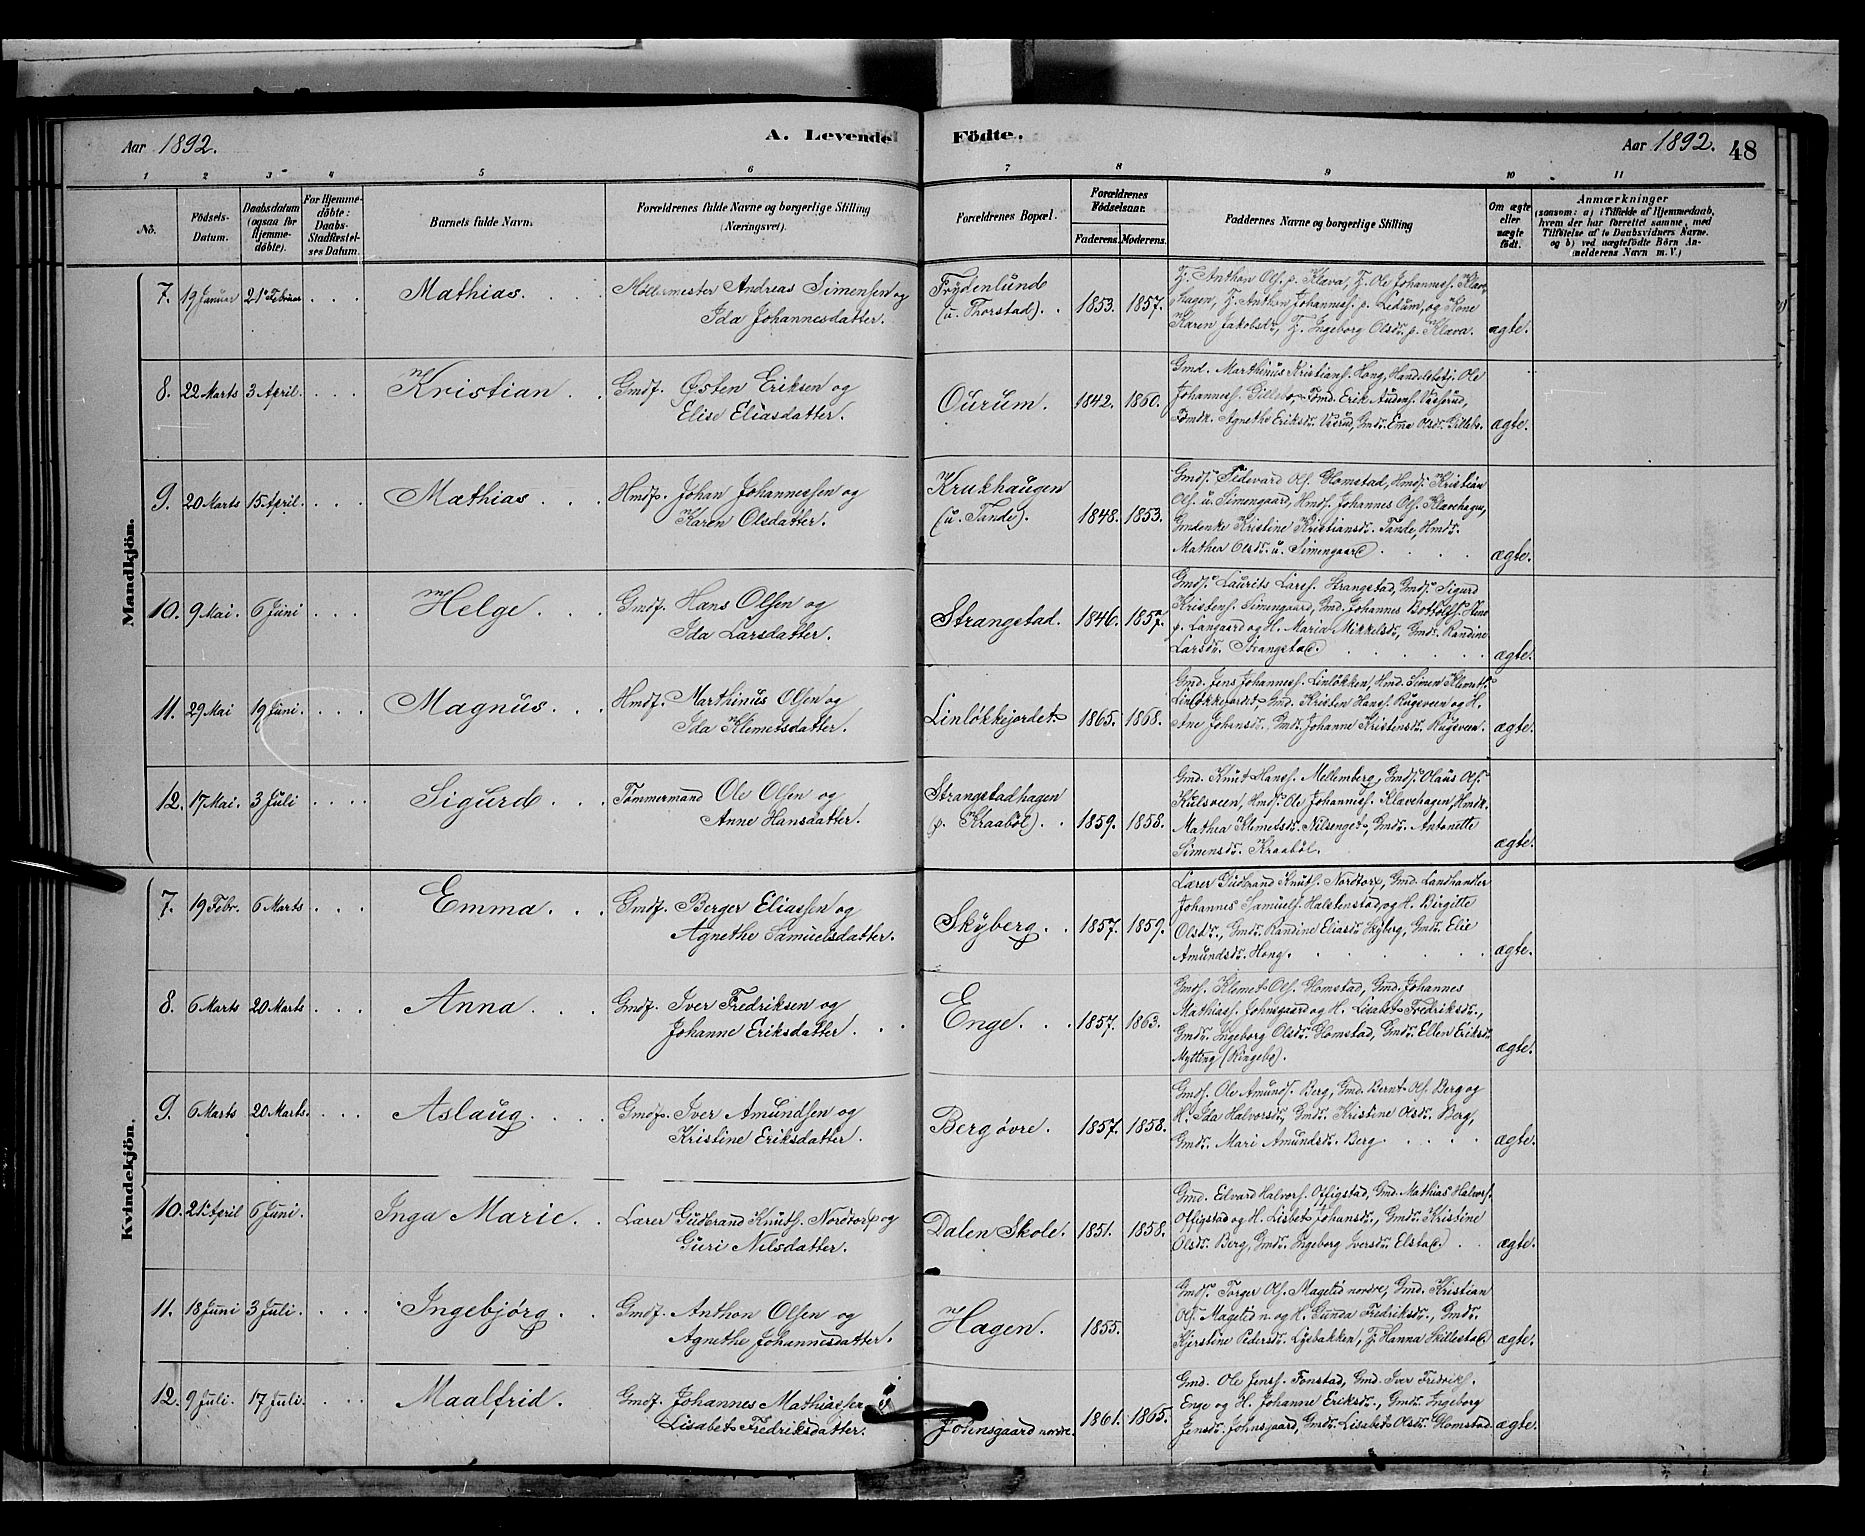 Aar 1892.
A. Levende Födte.
Aar 1892. 48
1 2 3 4 5 6 7 8 9 10 11
No.
Födsels-
Datum.
Daabsdatum
(ogsaa for
Hjemme-
döbte).
For Hjemme-
döbte:
Daabs-
Stadfæstel-
ses Datum.
Barnets fulde Navn.
Forældrenes fulde Navne og borgerlige Stilling
(Næringsvei).
Forældrenes Bopæl.
Forældrenes
Födselsaar.
Faderens. Moderens.
Faddernes Navne og borgerlige Stilling
Om ægte
eller
uægte
födt.
Anmærkninger
(saasom: a) i Tilfælde af Hjemmedaab,
hvem der har forrettet samme, med
Tilföielse af to Daabsvidners Navne.
og b) ved uægtefödte Börn An-
melderens Navn m. V.)
Mandkjön.
7. 19 Januar 21 Februar Mathias.
Möllermester Andreas Simensen og
Ida Johannesdatter.
Frydenlund
(u. Thorstad). 1853. 1857.
Karen Jakobsdr., Tj. Ingeborg Olsdr. p. Klæva. ægte.
8. 22 Marts 3 April. Kristian.
Gmdf. Østen Eriksen og
Elise Eliasdatter.
Ourum. 1842. 1860.
Gmd. Marthinus Kristians. Hong, Handelsbetj. Ole
ægte.
9. 20 Marts 15 April. Mathias
Hmdf. Johan Johannessen og
Karen Olsdatter.
Krukhaugen
(u. Tande). 1848. 1853.
Gmds. Tidevard Ols. Glomstad, Hmds. Kristian
Ols. u. Simengaard, Hmds. Johannes Ols. Klævehagen,
Gmdenke Kristine Kristiansdr. Tande, Hmdr.
Mathea Olsdr. u. Simengaard. ægte.
10. 9 Mai. 6 Juni Helge.
Gmdf. Hans Olsen og
Ida Larsdatter.
Strangstad. 1846. 1857.
Gmds. Laurits Larss. Strangstad, Gmds. Sigurd
Kristens. Simengaard, Gmd. Johannes Bottolfs.
p. Langaard og H. Maria Mikkelsdr., Gmdr. Randine
Larsdr. Strangstad. ægte.
11. 29 Mai 19 Juni. Magnus.
Hmdf. Marthinus Olsen og
Ida Klemetsdatter.
Linlökkejordet 1865. 1868.
Gmd. Jens Johanness. Linlökken, Hmd. Simen Klemets.
Linlökkejordet, Gmd. Kristen Hans. Rugsveen og H.
Ane Johansdr., Gmdr. Johanne Kristensdr. Rugsveen. ægte.
12. 17 Mai. 3 Juli Sigurd
Tømmermand Ole Olsen og
Anne Hansdatter.
Strangstadhagen
(p. Kraaböl). 1859. 1858.
Gmd. Knut Hans. Mellemberg, Gmds. Olaus Ols.
Kulsveen, Hmds. Ole Johanness. Klævehagen, Hmdk.
Mathea Klemetsdr. Nilsenget, Gmdr. Antonette
Simensdr. Kraaböl. ægte.
Kvindekjön.
7. 19 Febr. 6 Marts Emma.
Gmdf. Berger Eliassen og
Agnethe Samuelsdatter.
Skyberg. 1857. 1859.
Lærer Gudbrand Knuts. Nordtorp, Gmd. Landhandler
Johannes Samuels. Halstenstad og H. Birgitte
Olsdr., Gmdr. Randine Eliasdr. Skyberg, Gmdr. Elie
Amundsdr. Hong. ægte.
8. 6 Marts 20 Marts Anna.
Gmdf. Iver Fredriksen og
Johanne Eriksdatter.
Enge. 1857. 1863.
Gmds. Klemet Ols. Glomstad, Gmd. Johannes
Mathiass. Johnsgaard og H. Lisabet Fredriksdr.,
Gmdr. Ingeborg Olsdr. Glomstad, Gmdr. Ellen Eriksdr.
Mytting (Ringebo). ægte.
9. 6 Marts 20 Marts. Aslaug.
Gmdf. Iver Amundsen og
Kristine Eriksdatter.
Berg øvre. 1857. 1858.
Gmds. Ole Amunds. Berg, Gmd. Bernt Ols. Berg og
H. Ida Halvorsdr., Gmdr. Kristine Olsdr. Berg,
Gmdr. Mari Amundsdr. Berg. ægte.
10. 21 April 6 Juni. Inga Marie.
Lærer Gudbrand Knuts. Nordtorp og
Guri Nilsdatter.
Dalen Skole. 1851. 1858.
Gmd. Edvard Halvors. Offigstad, Gmd. Mathias Halvors.
Offigstad og H. Lisbet Johansdr., Gmdr. Kristine
Olsdr. Berg, Gmdr. Ingeborg Iversdr. Elstad. ægte.
11. 18 Juni 3 Juli. Ingebjørg.
Gmdf. Anthon Olsen og
Agnethe Johannesdatter.
Hagen. 1855.
Gmds. Torger Ols. Magelid nordre, Gmd. Kristian
Ols. Magelid n. og H. Gunda Fredriksdr., Gmdr.
Kjerstine Pedersdr. Lysbakken, Tj. Hanna Skillestad ægte.
12. 9 Juli. 17 Juli. Maalfrid.
Gmdf. Johannes Mathiassen og
Lisabet Fredriksdatter.
Johnsgaard nordre. 1861. 1865.
Gmd. Ole Jens. Fonstad, Gmd. Iver Fredriks.
Enge og H. Johanne Eriksdr., Gmdr. Ingeborg
Jensdr. Johnsgaard, Gmdr. Lisabet Olsdr. Glomstad. ægte.